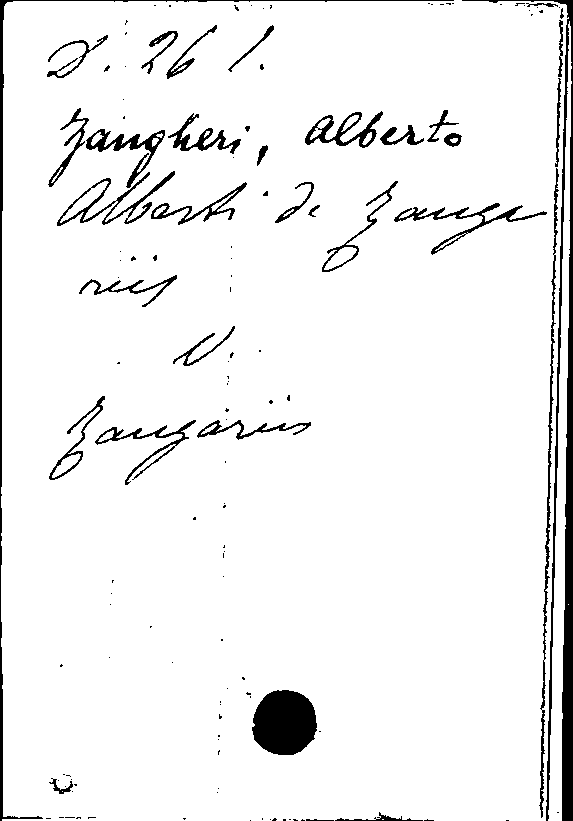 D. 26 1.
Zangheri, Alberto
Alberti de Zange
riis
V.
Zangariis